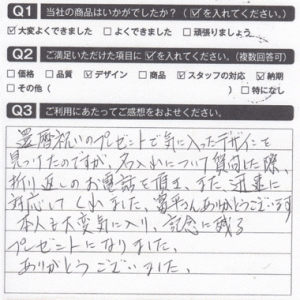 Q1 当社の商品はいかがでしたか?(☑を入れてください。)
☑大変よくできました □よくできました □頑張りましょう
Q2 ご満足いただけた項目に☑を入れてください。(複数回答可)
□価格 □品質 ☑デザイン □商品 ☑スタッフの対応 ☑納期
□その他( ) □特になし
Q3 ご利用にあたってご感想をおよせください。
還暦祝いのプレゼントで気に入ったデザインを
見つけたのですが、名入れについて質問した際、
折り返しのお電話を頂き、また、迅速に
対応してくれました。ありがとうございます
本人も大変気に入り、記念に残る
プレゼントになりました。
ありがとうございました。